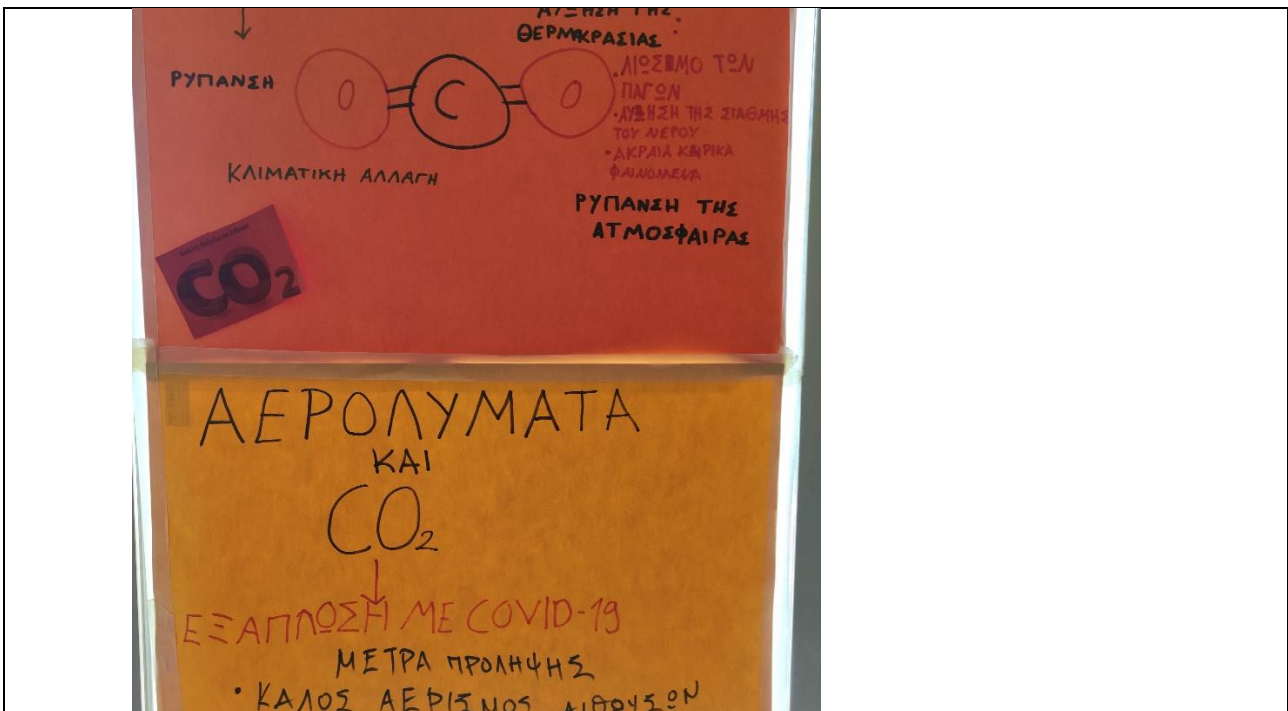 ΑΥΞΗΣΗ ΤΗΣ
ΘΕΡΜΚΡΑΣΙΑΣ
ΡΥΠΑΝΣΗ
O = C = O
• ΛΙΩΣΙΜΟ ΤΩΝ
ΠΑΓΩΝ
• ΑΥΞΗΣΗ ΤΗΣ ΣΤΑΘΜΗΣ
ΤΟΥ ΝΕΡΟΥ
• ΑΚΡΑΙΑ ΚΑΙΡΙΚΑ
ΦΑΙΝΟΜΕΝΑ
ΚΛΙΜΑΤΙΚΗ ΑΛΛΑΓΗ
ΡΥΠΑΝΣΗ ΤΗΣ
ΑΤΜΟΣΦΑΙΡΑΣ
CO2
ΑΕΡΟΛΥΜΑΤΑ
ΚΑΙ
CO2
ΕΞΑΠΛΩΣΗ ΜΕ COVID-19
ΜΕΤΡΑ ΠΡΟΛΗΨΗΣ
• ΚΑΛΟΣ ΑΕΡΙΣΜΟΣ ΑΙΘΟΥΣΩΝ